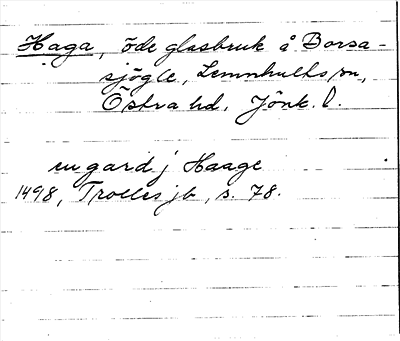 Haga, öde glasbruk å Borsa-
sjögle, Lemnhults sn,
Östra hd. Jönk. l.
en gard j Haage
1498, Trolles jb, s. 78.